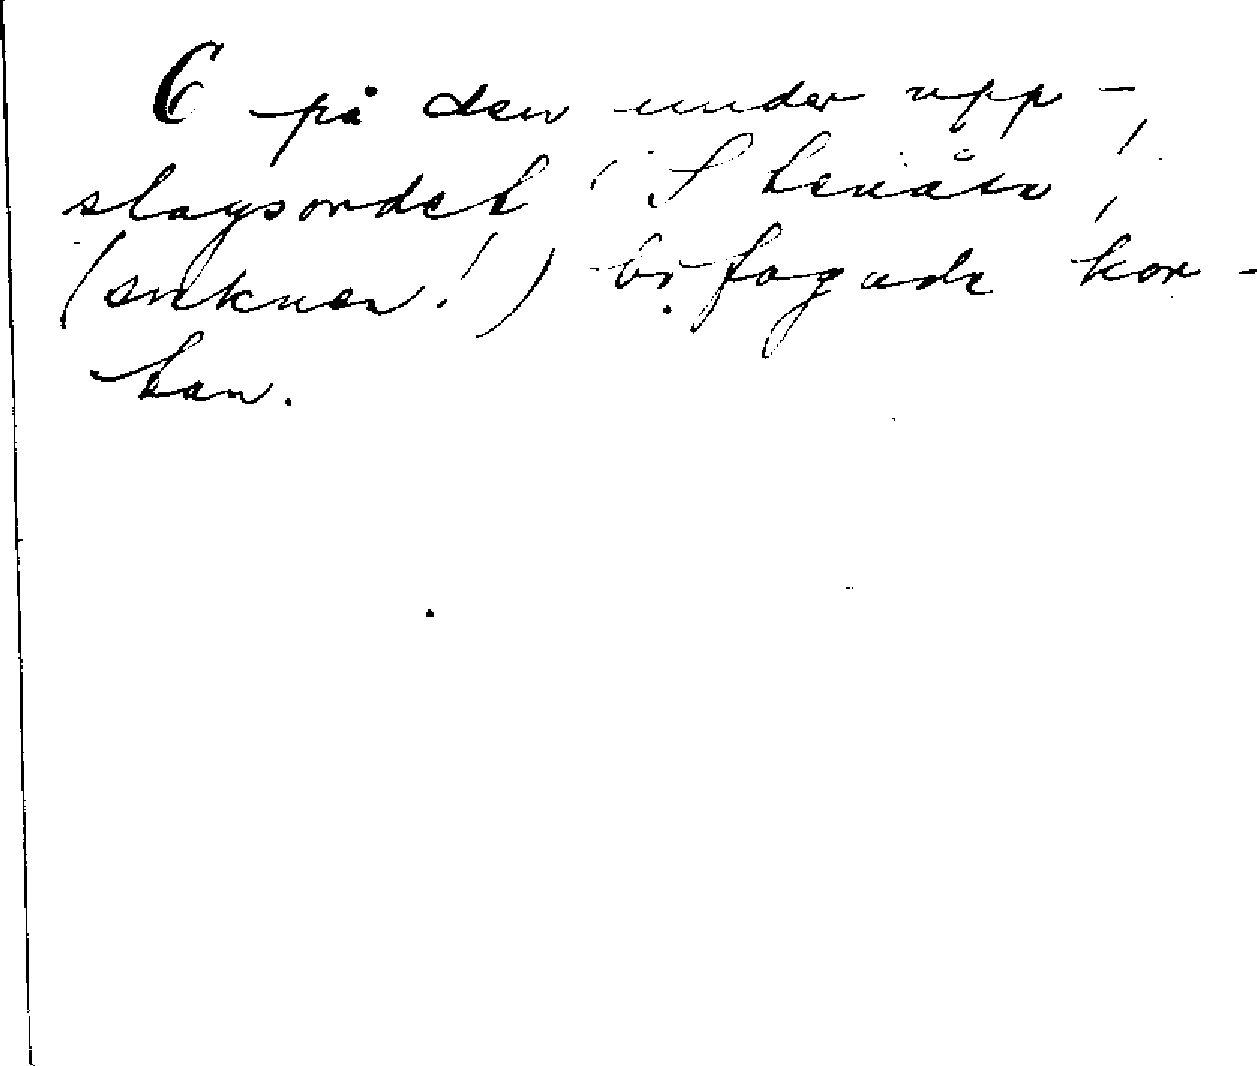 C på den under upp-
slagsordet 'S Lenåsv'
(soknen!) bifogade kar-
tan.